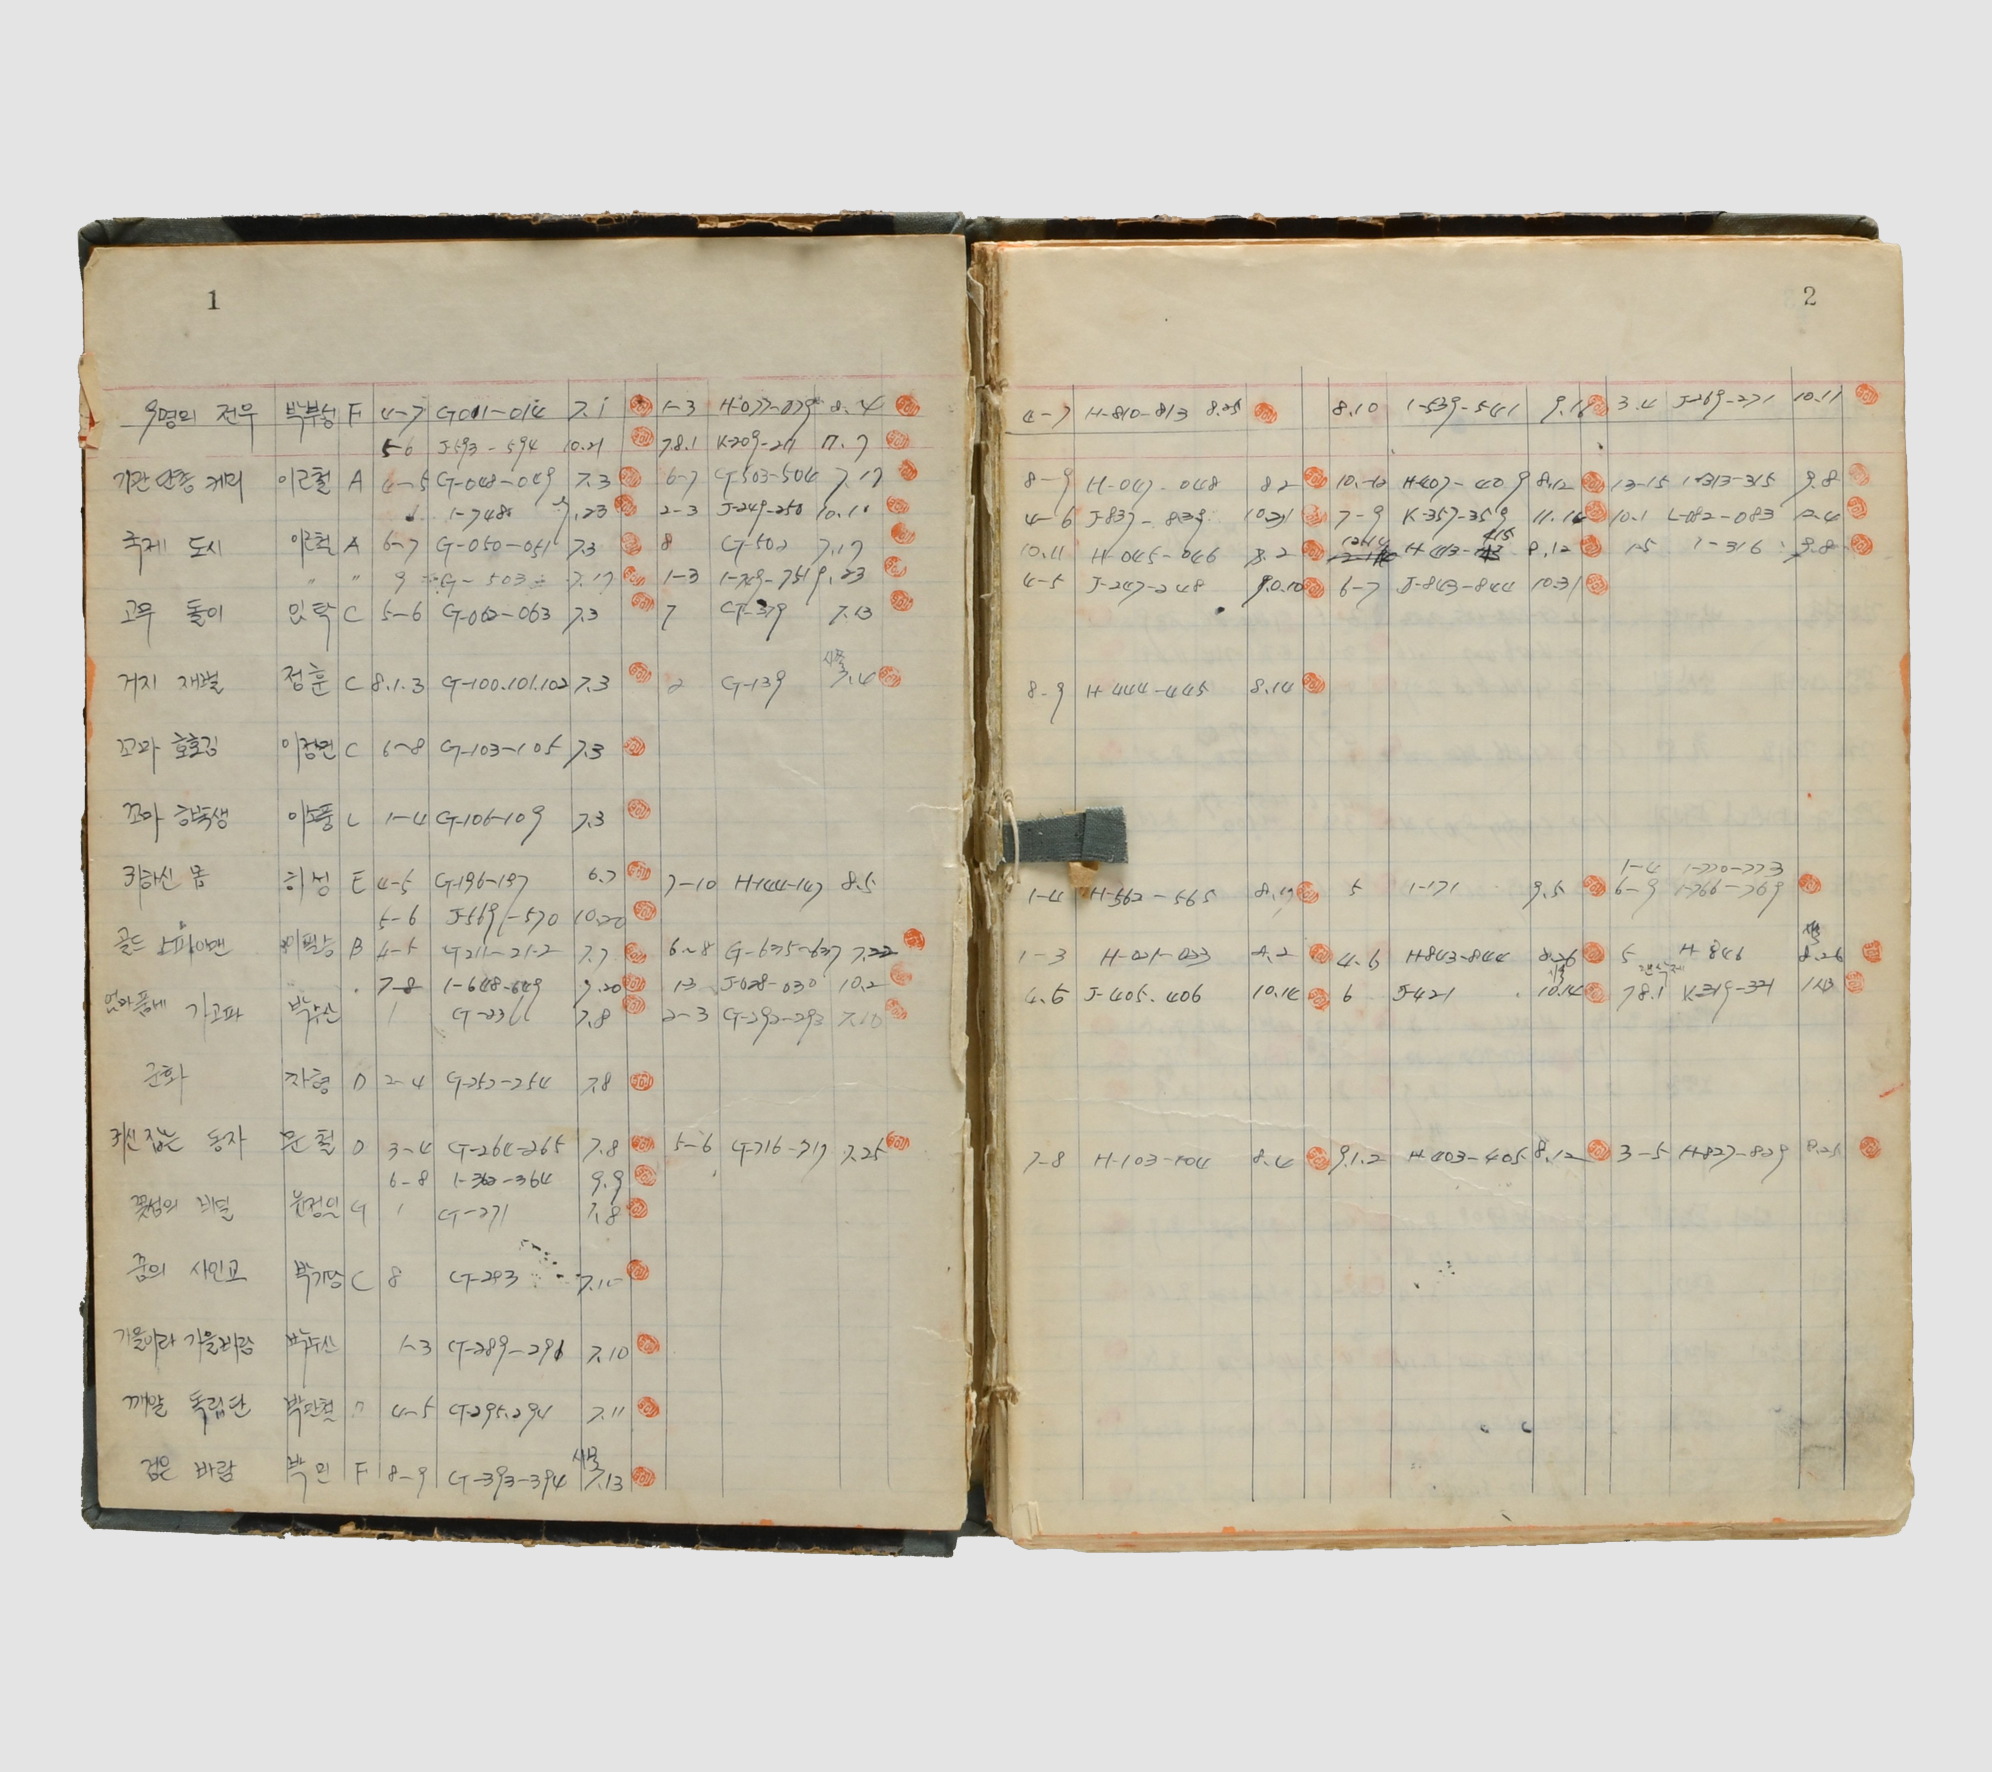 1
우명의 전우 박부성 F 4-7 G-011-014 7.1 1-3 H-077-079 8.4
5-6 J-593-594 10.21 7.8.1 K-209-211 11.7
기관단총 케리 이근철 A 4-5 G-048-049 7.3 6-7 G-503-504 7.17
1-748 9.23 2-3 J-249-250 10.10
국제 도시 이근철 A 6-7 G-050-051 7.3 8 G-502 7.17
〃 〃 9 G-503 7.17 1-3 1-749-751 9.23
고무 돌이 임탁 C 5-6 G-062-063 7.3 7 G-379 7.13
거지 재벌 정훈 C 8.1.3 G-100.101.102 7.3 2 G-139 7.4
꼬마 호호김 C 6-8 G-103-105 7.3
꼬마 하숙생 1-4 G-106-109 7.3
귀하신 몸 허성 E 4-5 G-196-197 6.7 7-10 H-144-147 8.5
5-6 J-569-570 10.20
골드 스파이맨 B 4-5 G-211-212 7.7 6-8 G-635-637 7.22
7-8 1-648-649 9.20 1-3 J-028-030 10.2
엄마품에 가고파 박수산 1 7.8 2-3 G-292-293 7.10
군화 차형 D 2-4 G-252-254 7.8
귀신 잡는 동자 윤철 D 3-4 G-264-265 7.8 5-6 G-716-717 7.25
6-8 1-362-364 9.9
꽃섬의 비밀 윤정일 G 1 G-271 7.8
꿈의 사인교 박기당 C 8 G-293
가을이라 가을바람 박수산 1-3 G-289-291 7.10
깨알 독립단 박민철 4-5 G-295.294 7.11
검은 바람 박민 F 8-9 G-393-394 7.13
2
4-7 H-810-813 8.25 8.10 1-539-541 9.18 3.4 J-269-271 10.11
8-9 H-047-048 8.2 10-12 H-407-409 8.12 13-15 1-313-315 9.8
4-6 J-837-839 10.31 7-9 K-357-359 11.16 10.1 L-082-083 12.4
10.11 H-045-046 8.2 12-14 H-413-415 8.12 15 1-316 9.8
4-5 J-247-248 10.10 6-7 J-843-844 10.31
8-9 H-444-445 8.14
1-4 1-770-773
1-4 H-562-565 8.19 5 1-171 9.5 6-9 1-766-769
1-3 H-021-023 8.2 4-6 H-843-844 8.26 5 H-846 8.26
4.5 J-405.406 10.14 6 J-421 10.14 7.8.1 K-319-321 11.13
7-8 H-103-104 8.4 9.1.2 H-403-405 8.12 3-5 H-827-829 8.25